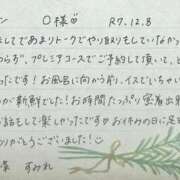 〇様♡ R7.12.8
してであまりトークでやり取りもしていなかっ
わらず、プレミアコースでご予約して頂いて、と
ったです！お風呂に向かう前、イスでいちゃい
が新鮮でした！お時間たっぷり密着出来
話もして楽しかったですお休みの日に足を
りがとうございました！☺
様 すみれ